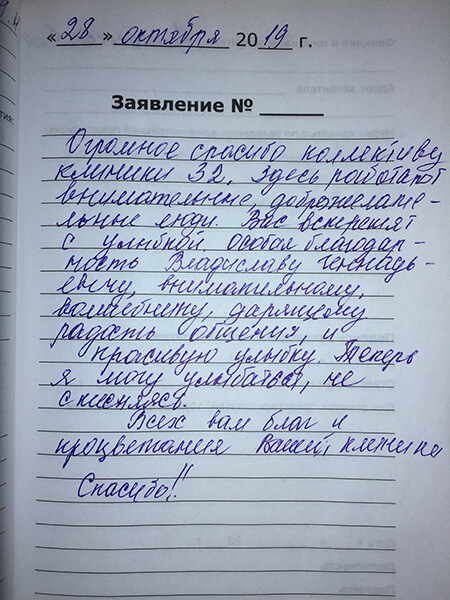 « 28 » октября 2019 г.
Заявление №
Огромное спасибо коллективу
клиники 32, здесь работают
внимательные, доброжелате-
льные люди. Вас встречают
с улыбкой особая благодар-
ность Владиславу Геннадь-
евичу, внимательному,
волшебнику, дарящему
радость общения, и
красивую улыбку. Теперь
я могу улыбаться, не
стесняясь.
Всех вам благ и
процветания Вашей клинике
Спасибо!!